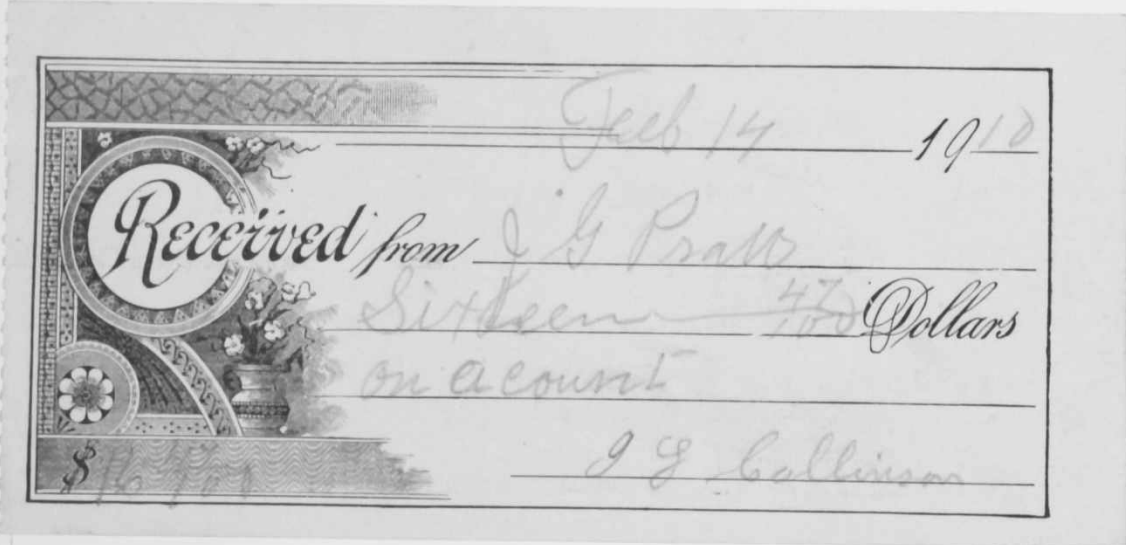 Feb 14 1910
Received from J G Pratt
Sixteen 47/100 Dollars
on acount
$ 16
J G Collinson